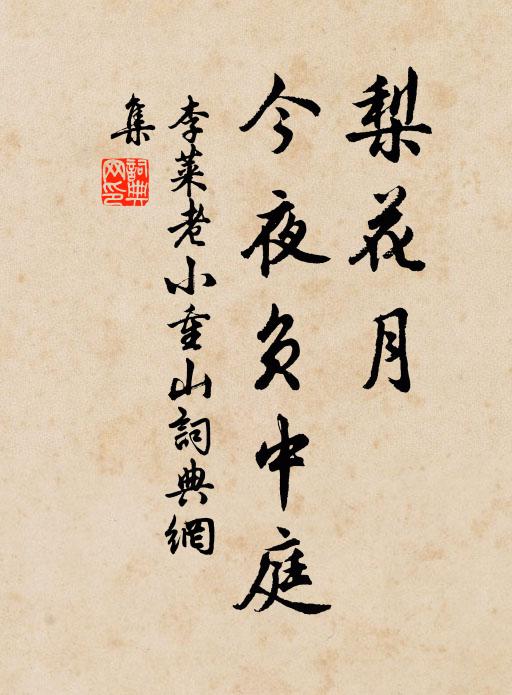 梨花月
今夜負中庭
李萊老小重山詞典網
集
詞典
网印